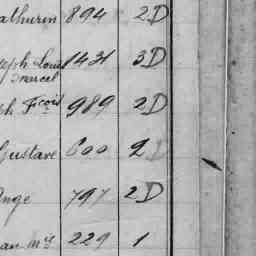 athurin 894 2D
eph Louis 1431 3D
Marcel
ph Fçois 989 2D
Gustave 600 2D
Ange 797 2D
ean Mie 229 1